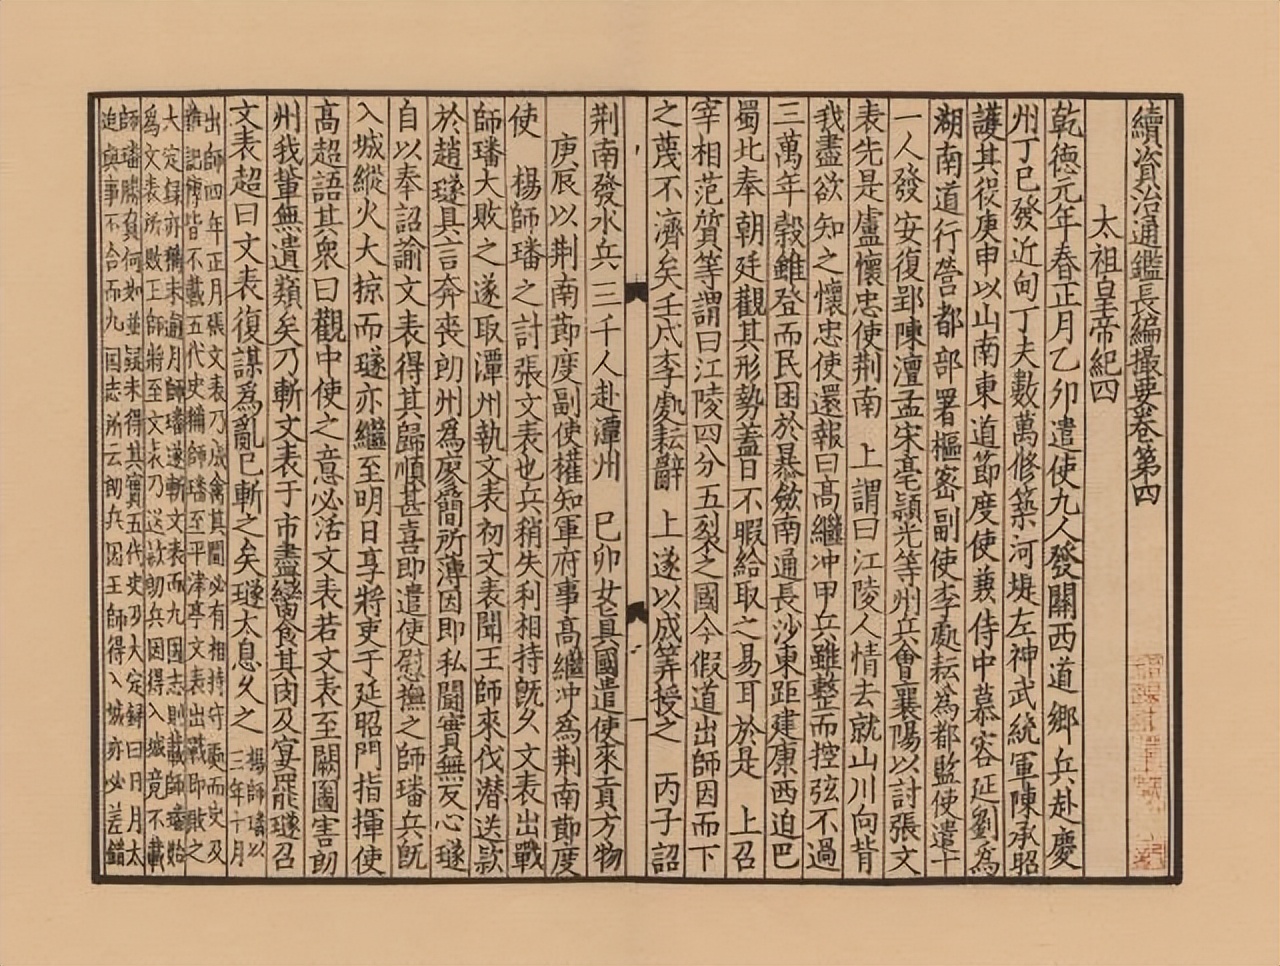 續資治通鑑長編撮要卷第四
太祖皇帝紀四
乾德元年春正月乙卯遣使九人發關西道鄉兵赴慶
州丁巳發近甸丁夫數萬修築河堤左神武統軍陳承昭
護其役庚申以山南東道節度使兼侍中慕容延釗為
湖南道行營都部署樞密副使李處耘為都監使遣十
一人發安復郢陳澶孟宋亳潁光等州兵會襄陽以討張文
表先是盧懷忠使荆南 上謂曰江陵人情去就山川向背
我盡欲知之懷忠使還報曰高繼冲甲兵雖整而控弦不過
三萬年穀雖登而民困於暴斂南通長沙東距建康西迫巴
蜀北奉朝廷觀其形勢蓋日不暇給取之易耳於是 上召
宰相范質等謂曰江陵四分五裂之國今假道出師因而下
之蔑不濟矣壬戌李處耘辭 上遂以成筭授之 丙子詔
荆南發水兵三千人赴潭州 己卯女眞國遣使來貢方物
庚辰以荆南節度副使權知軍府事高繼冲為荆南節度
使 楊師璠之討張文表也兵稍失利相持旣久文表出戰
師璠大敗之遂取潭州執文表初文表聞王師來伐潜送款
於趙璲具言奔喪朗州為廖簡所薄因即私鬭實無反心璲
自以奉詔諭文表得其歸順甚喜即遣使慰撫之師璠兵旣
入城縱火大掠而璲亦繼至明日享將吏于延昭門指揮使
高超語其衆曰觀中使之意必活文表若文表至闕圖害朗
州我輩無遺類矣乃斬文表于市盡臠食其肉及宴罷璲召
文表超曰文表復謀為亂已斬之矣璲太息久之 楊師璠以
三年十月
出師四年正月張文表乃成禽其間必有相持守處而史及
雜記傳皆不載五代史補師璠至平津亭文表出戰即敗之
大定録亦稱未逾月師璠遂斬文表而九国志則載師璠始
為文表所敗王師將至文表乃送款朗兵因得入城竟不載
師璠勝負何如並疑未得其實五代史乃大定録曰月月太
迫與事不合而九国志所云朗兵因王師得入城亦必差錯